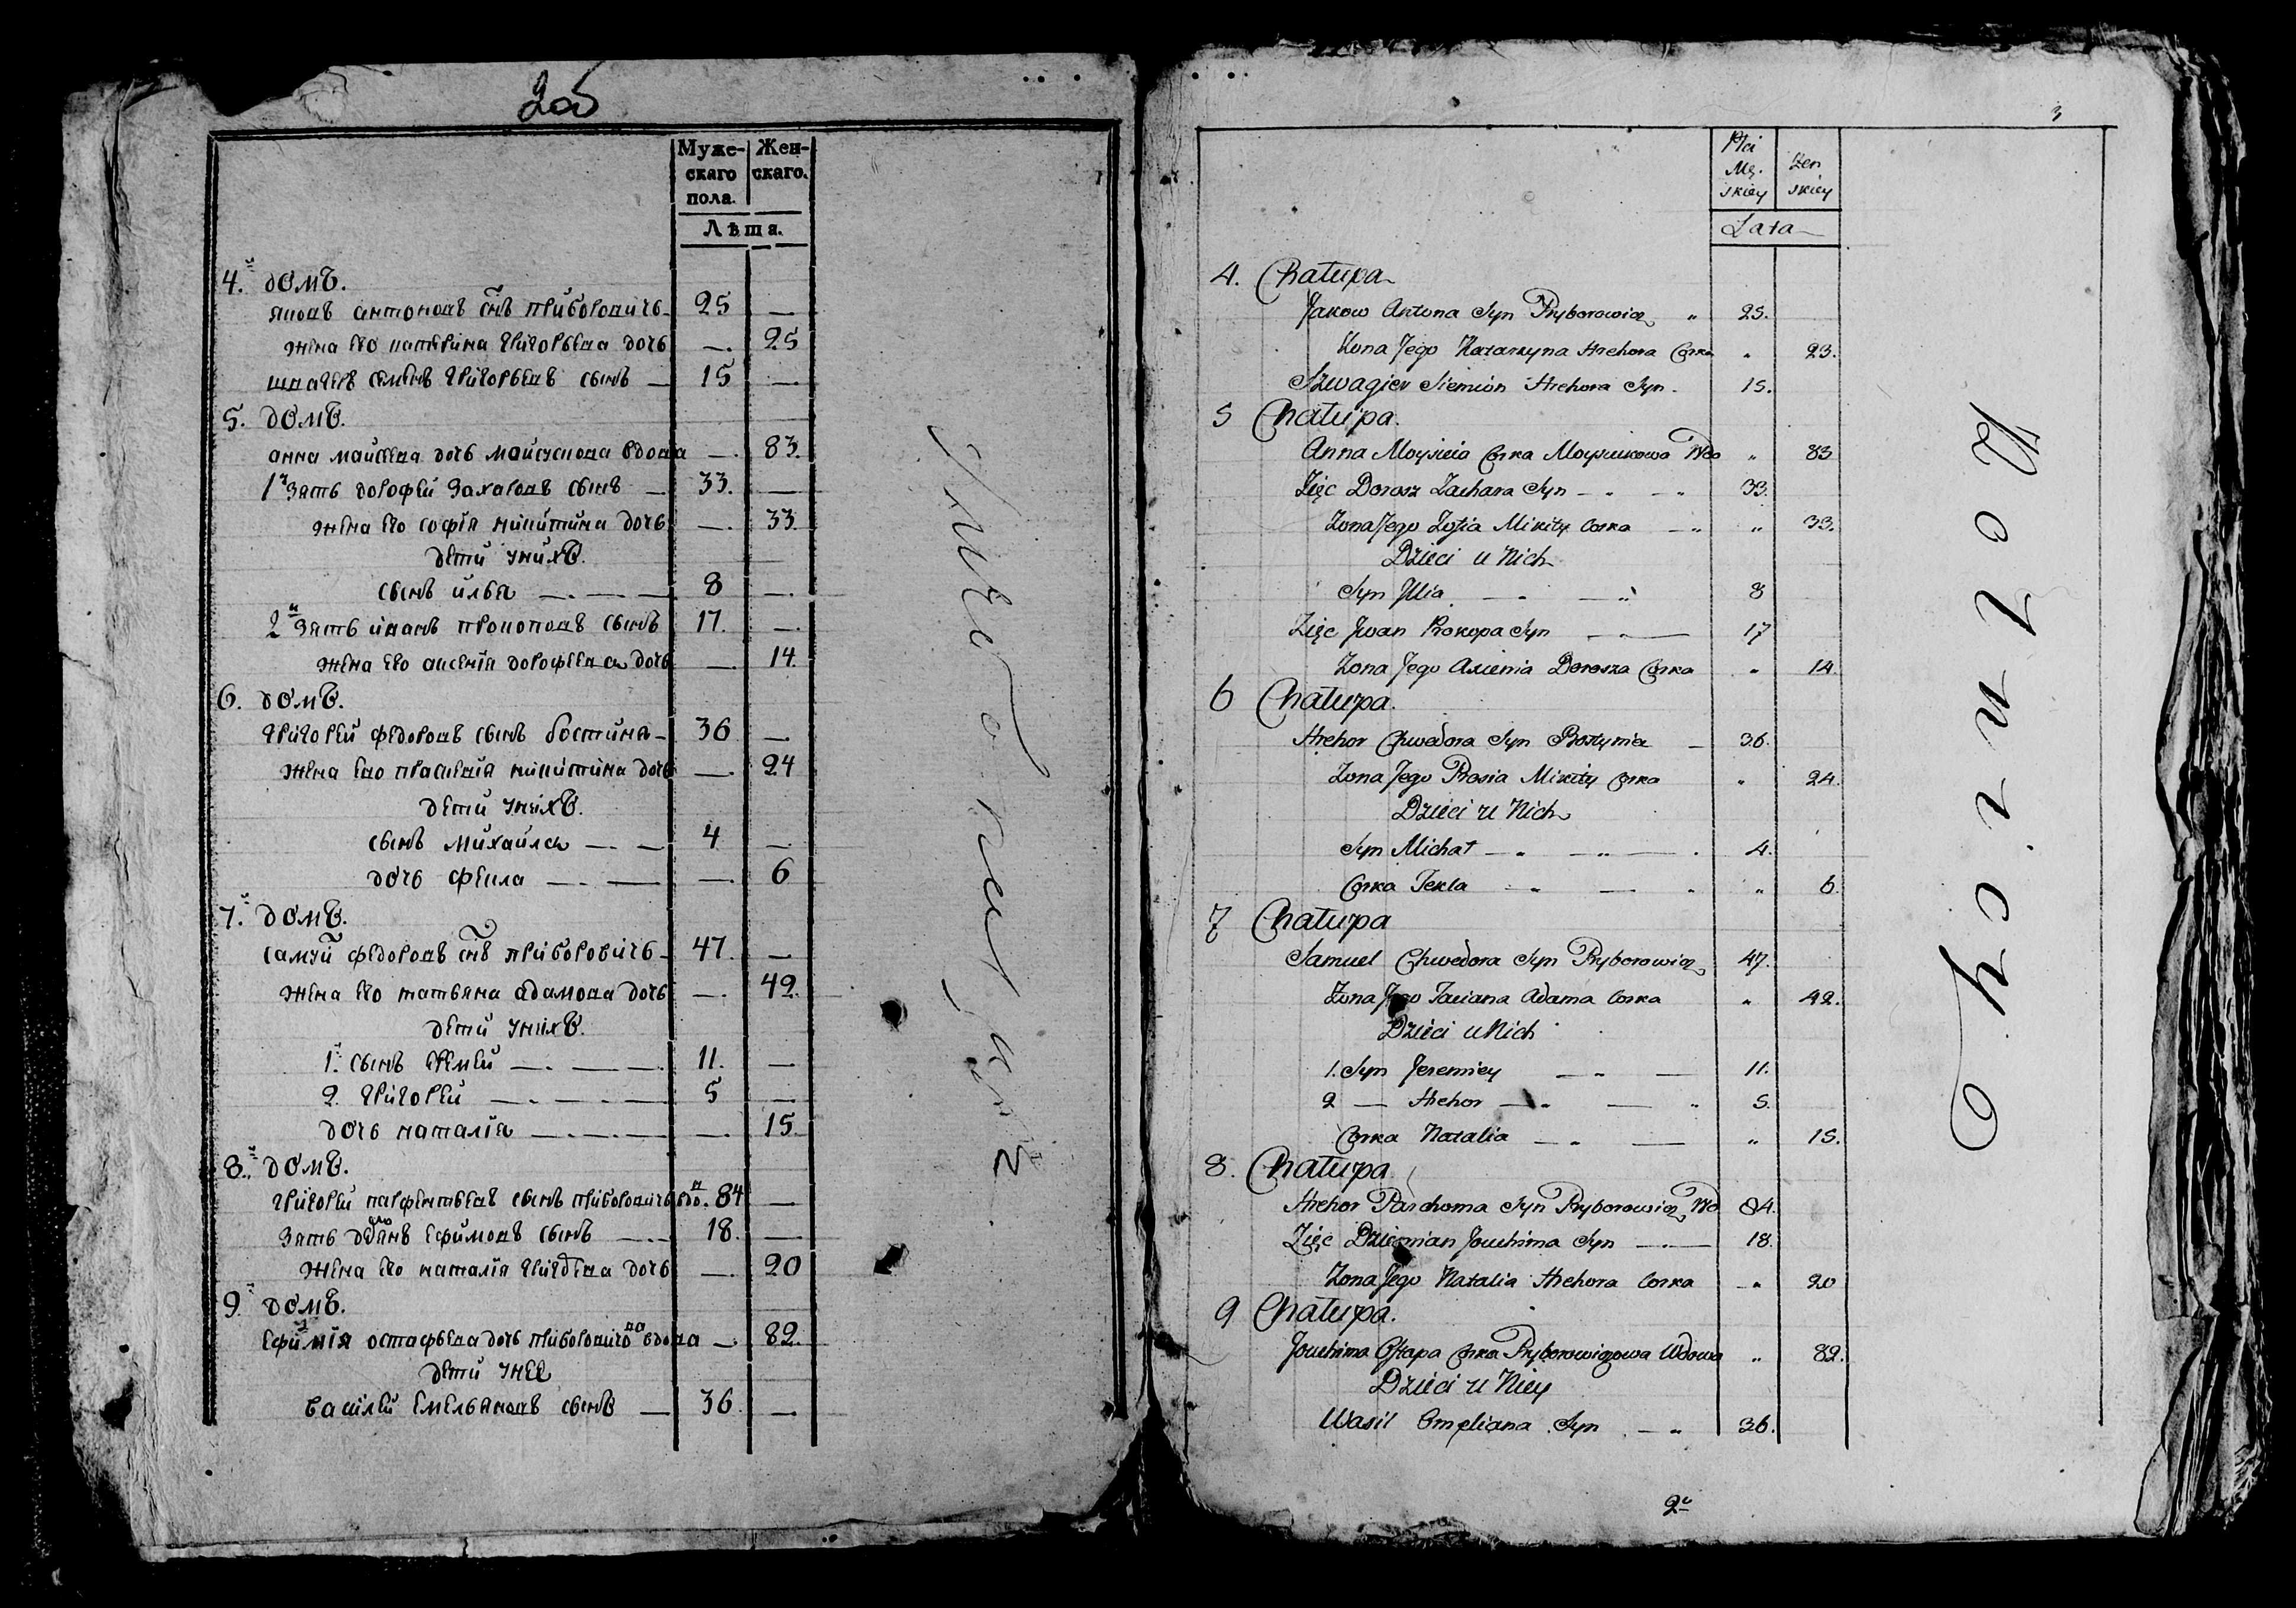 2об
Муже-
скаго
пола.
Жен-
скаго.
Лѣта.
4.й домъ.
яковъ антоновъ снъ приборовичь 25 —
жена его катерина григорьева дочь — 25
швагеръ семенъ григорьевъ сынъ — 15 —
5. домъ.
анна майсеева дочь мойсуцкова вдова — 83.
1й зять дорофей захаровъ сынъ — 33. —
жена его софія никитина дочь — 33
дети унихъ.
сынъ илья — 8 —
2й зять иванъ прокоповъ сынъ 17. —
жена его аксенія дорофеева дочь — 14.
6. домъ.
григорей федоровъ сынъ бостиня 36 —
жена ево праскевія никитина дочь — 24
дети унихъ.
сынъ михайла — 4 —
дочь фекла — 6
7.й домъ.
самуй федоровъ снъ приборовичь 47. —
жена его татьяна адамова дочь — 42.
дети унихъ.
1.й сынъ еремей — 11. —
2. григорей — 5 —
дочь наталія — 15.
8.й домъ.
григорей парфентьевъ сынъ приборовичь вдо. 84 —
зять ефимовъ сынъ — 18. —
жена его наталія дочь — 20
9.й домъ.
ефимія остафьева дочь вдова — 82.
дети унее
василей емельяновъ сынъ — 36. —
3
Płci
Mę-
skiey
Żen
skiey
Lata
4. Chałupa
Jakow Antona Syn Pryborowicz " 25.
Żona Jego Katarzyna Hrehora Corka " 23.
Szwagier Siemion Hrehora Syn. 15.
5 Chałupa.
Anna Moysieia Corka Moysiukowa Wdo " 83
Zięc Dorosz Zachara Syn — " — " 33.
Żona Jego Zofia Mikity Corka — " " 33.
Dzieci u Nich
Syn Illia — " — " 8
Zięc Jwan Prokopa Syn — " — 17
Żona Jego Axienia Dorosza Corka " 14.
6 Chałupa.
Hrehor Chwedora Syn Bostynia — 36.
Żona Jego Prosia Mikity Corka " 24.
Dzieci u Nich
Syn Michał — " — " — . 4.
Corka Tekla — " — " " 6.
7 Chałupa
Samuel Chwedora Syn Pryborowicz 47.
Żona Jego Taciana Adama Corka " 42.
Dzieci u Nich
1. Syn Jeremiey — " — 11.
2 — Hrehor — " — " 5.
Corka Natalia — " — " 15.
8. Chałupa
Hrehor Parchoma Syn Pryborowicz Wd 84.
Zięc Dziemian Jouchima Syn — " — 18.
Żona Jego Natalia Hrehora Corka — " 20
9 Chałupa.
Jouchima Ostapa Corka Pryborowiczowa Wdowa " 82.
Dzieci u Niey
Wasil Omeliana Syn — " 36.
2e